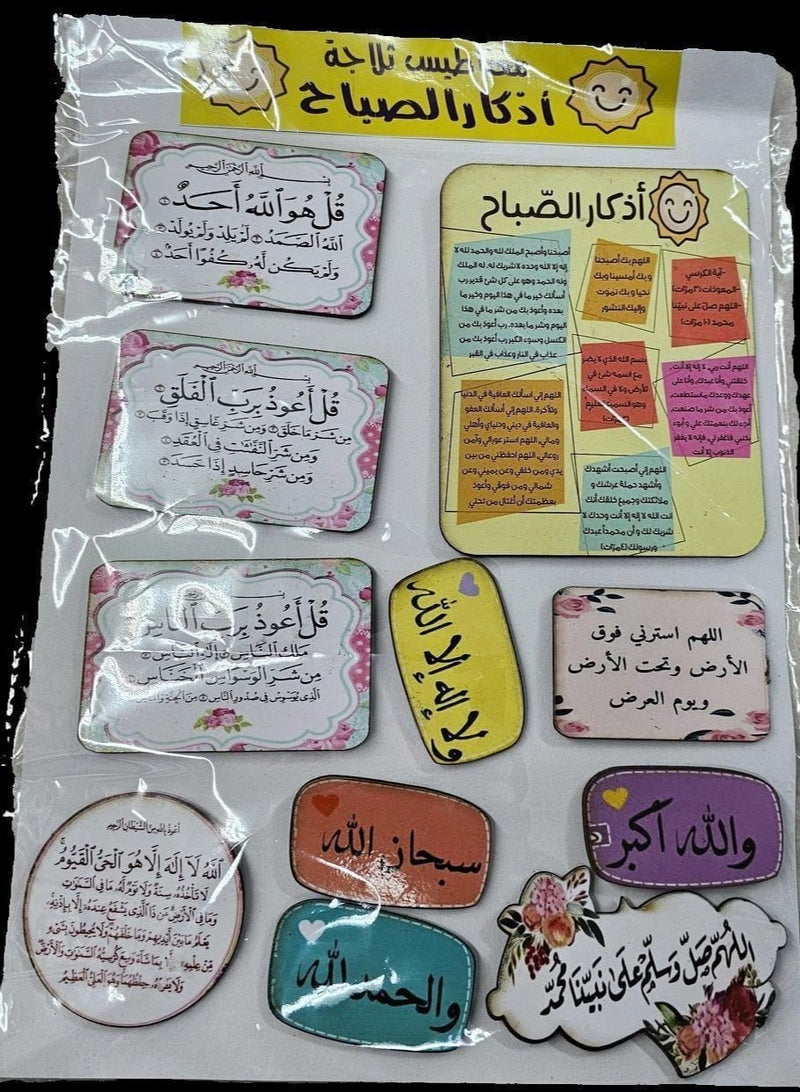 مغناطيس ثلاجة
أذكار الصباح
بسم الله الرحمن الرحيم
قُلْ هُوَ ٱللَّهُ أَحَدٌ ١
ٱللَّهُ ٱلصَّمَدُ ٢ لَمْ يَلِدْ وَلَمْ يُولَدْ ٣
وَلَمْ يَكُن لَّهُۥ كُفُوًا أَحَدٌ ٤
بسم الله الرحمن الرحيم
قُلْ أَعُوذُ بِرَبِّ ٱلْفَلَقِ ١
مِن شَرِّ مَا خَلَقَ ٢ وَمِن شَرِّ غَاسِقٍ إِذَا وَقَبَ ٣
وَمِن شَرِّ ٱلنَّفَّٰثَٰتِ فِى ٱلْعُقَدِ ٤
وَمِن شَرِّ حَاسِدٍ إِذَا حَسَدَ ٥
قُلْ أَعُوذُ بِرَبِّ ٱلنَّاسِ
مَلِكِ ٱلنَّاسِ ٢ إِلَٰهِ ٱلنَّاسِ ٣
مِن شَرِّ ٱلْوَسْوَاسِ ٱلْخَنَّاسِ ٤
ٱلَّذِى يُوَسْوِسُ فِى صُدُورِ ٱلنَّاسِ ٥ مِنَ ٱلْجِنَّةِ وَٱلنَّاسِ
أذكار الصّباح
-آية الكرسي
-المعوذات (٣ مرّات)
-اللهم صلّ على نبيّنا
محمد (١٠ مرّات)
اللهم بك أصبحنا
وبك أمسينا وبك
نحيا وبك نموت
وإليك النشور
أصبحنا وأصبح الملك لله والحمد لله لا
إله إلا الله وحده لا شريك له، له الملك
وله الحمد وهو على كل شئ قدير، رب
أسألك خير ما في هذا اليوم وخير ما
بعده وأعوذ بك من شر ما في هذا
اليوم وشر ما بعده، رب أعوذ بك من
الكسل وسوء الكبر رب أعوذ بك من
عذاب في النار وعذاب في القبر
اللهم أنت ربي، لا إله إلا أنت،
خلقتني وأنا عبدك، وأنا على
عهدك ووعدك ما استطعت،
أعوذ بك من شر ما صنعت،
أبوء لك بنعمتك علي و أبوء
بذنبي فاغفر لي، فإنه لا يغفر
الذنوب إلا أنت
بسم الله الذي لا يضر
مع اسمه شئ في
الأرض ولا في السماء
وهو السميع العليم
اللهم إني أسألك العافية في الدنيا
والآخرة، اللهم إني أسألك العفو
والعافية في ديني ودنياي وأهلي
ومالي، اللهم استر عوراتي وآمن
روعاتي، اللهم احفظني من بين
يدي ومن خلفي وعن يميني وعن
شمالي ومن فوقي وأعوذ
بعظمتك أن أغتال من تحتي
اللهم إني أصبحت أشهدك
وأشهد حملة عرشك و
ملائكتك وجميع خلقك أنك
أنت الله لا إله إلا أنت وحدك لا
شريك لك و أن محمداً عبدك
ورسولك (٤ مرّات)
ولا إله إلا الله
اللهم استرني فوق
الأرض وتحت الأرض
ويوم العرض
سبحان الله
والله أكبر
والحمد لله
اللهُمَّ صَلِّ وَسَلِّمْ عَلَىٰ نَبِيِّنَا مُحَمَّدٍ
أعوذ بالله من الشيطان الرجيم
ٱللَّهُ لَآ إِلَٰهَ إِلَّا هُوَ ٱلْحَىُّ ٱلْقَيُّومُ
لَا تَأْخُذُهُۥ سِنَةٌ وَلَا نَوْمٌ لَّهُۥ مَا فِى ٱلسَّمَٰوَٰتِ
وَمَا فِى ٱلْأَرْضِ مَن ذَا ٱلَّذِى يَشْفَعُ عِندَهُۥٓ إِلَّا بِإِذْنِهِۦ
يَعْلَمُ مَا بَيْنَ أَيْدِيهِمْ وَمَا خَلْفَهُمْ وَلَا يُحِيطُونَ بِشَىْءٍ
مِّنْ عِلْمِهِۦٓ إِلَّا بِمَا شَآءَ وَسِعَ كُرْسِيُّهُ ٱلسَّمَٰوَٰتِ وَٱلْأَرْضَ
وَلَا يَـُٔودُهُۥ حِفْظُهُمَا وَهُوَ ٱلْعَلِىُّ ٱلْعَظِيمُ